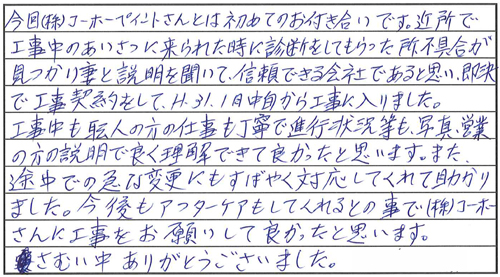 今回(株)コーホーペイントさんとは初めてのお付き合いです。近所で
工事中のあいさつに来られた時に診断をしてもらった所不具合が
見つかり事と説明を聞いて、信頼できる会社であると思い、即決
で工事契約をして、H.31.1月中旬から工事に入りました。
工事中も職人の方の仕事も丁寧で進行状況等も、写真、営業
の方の説明で良く理解できて良かったと思います。また、
途中での急な変更にもすばやく対応してくれて助かり
ました。今後もアフターケアもしてくれるとの事で(株)コーホー
さんに工事をお願いして良かったと思います。
さむい中ありがとうございました。